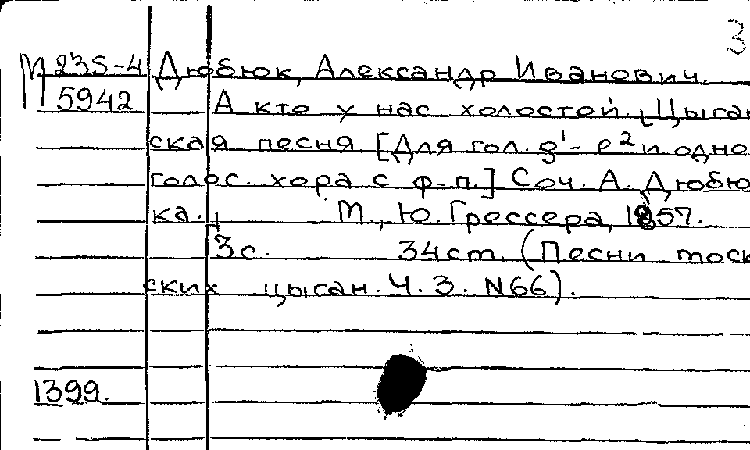 3
М 235-4 Дюбюк, Александр Иванович.
5942 А кто у нас холостой. Цыган
ская песня [Для гол. g¹- e² и одно
голос. хора с ф-п.] Соч. А. Дюбю
ка. М., Ю. Грессера, 1857.
3с. 34см. (Песни моск
ских цыган. Ч. 3. N66).
1399.